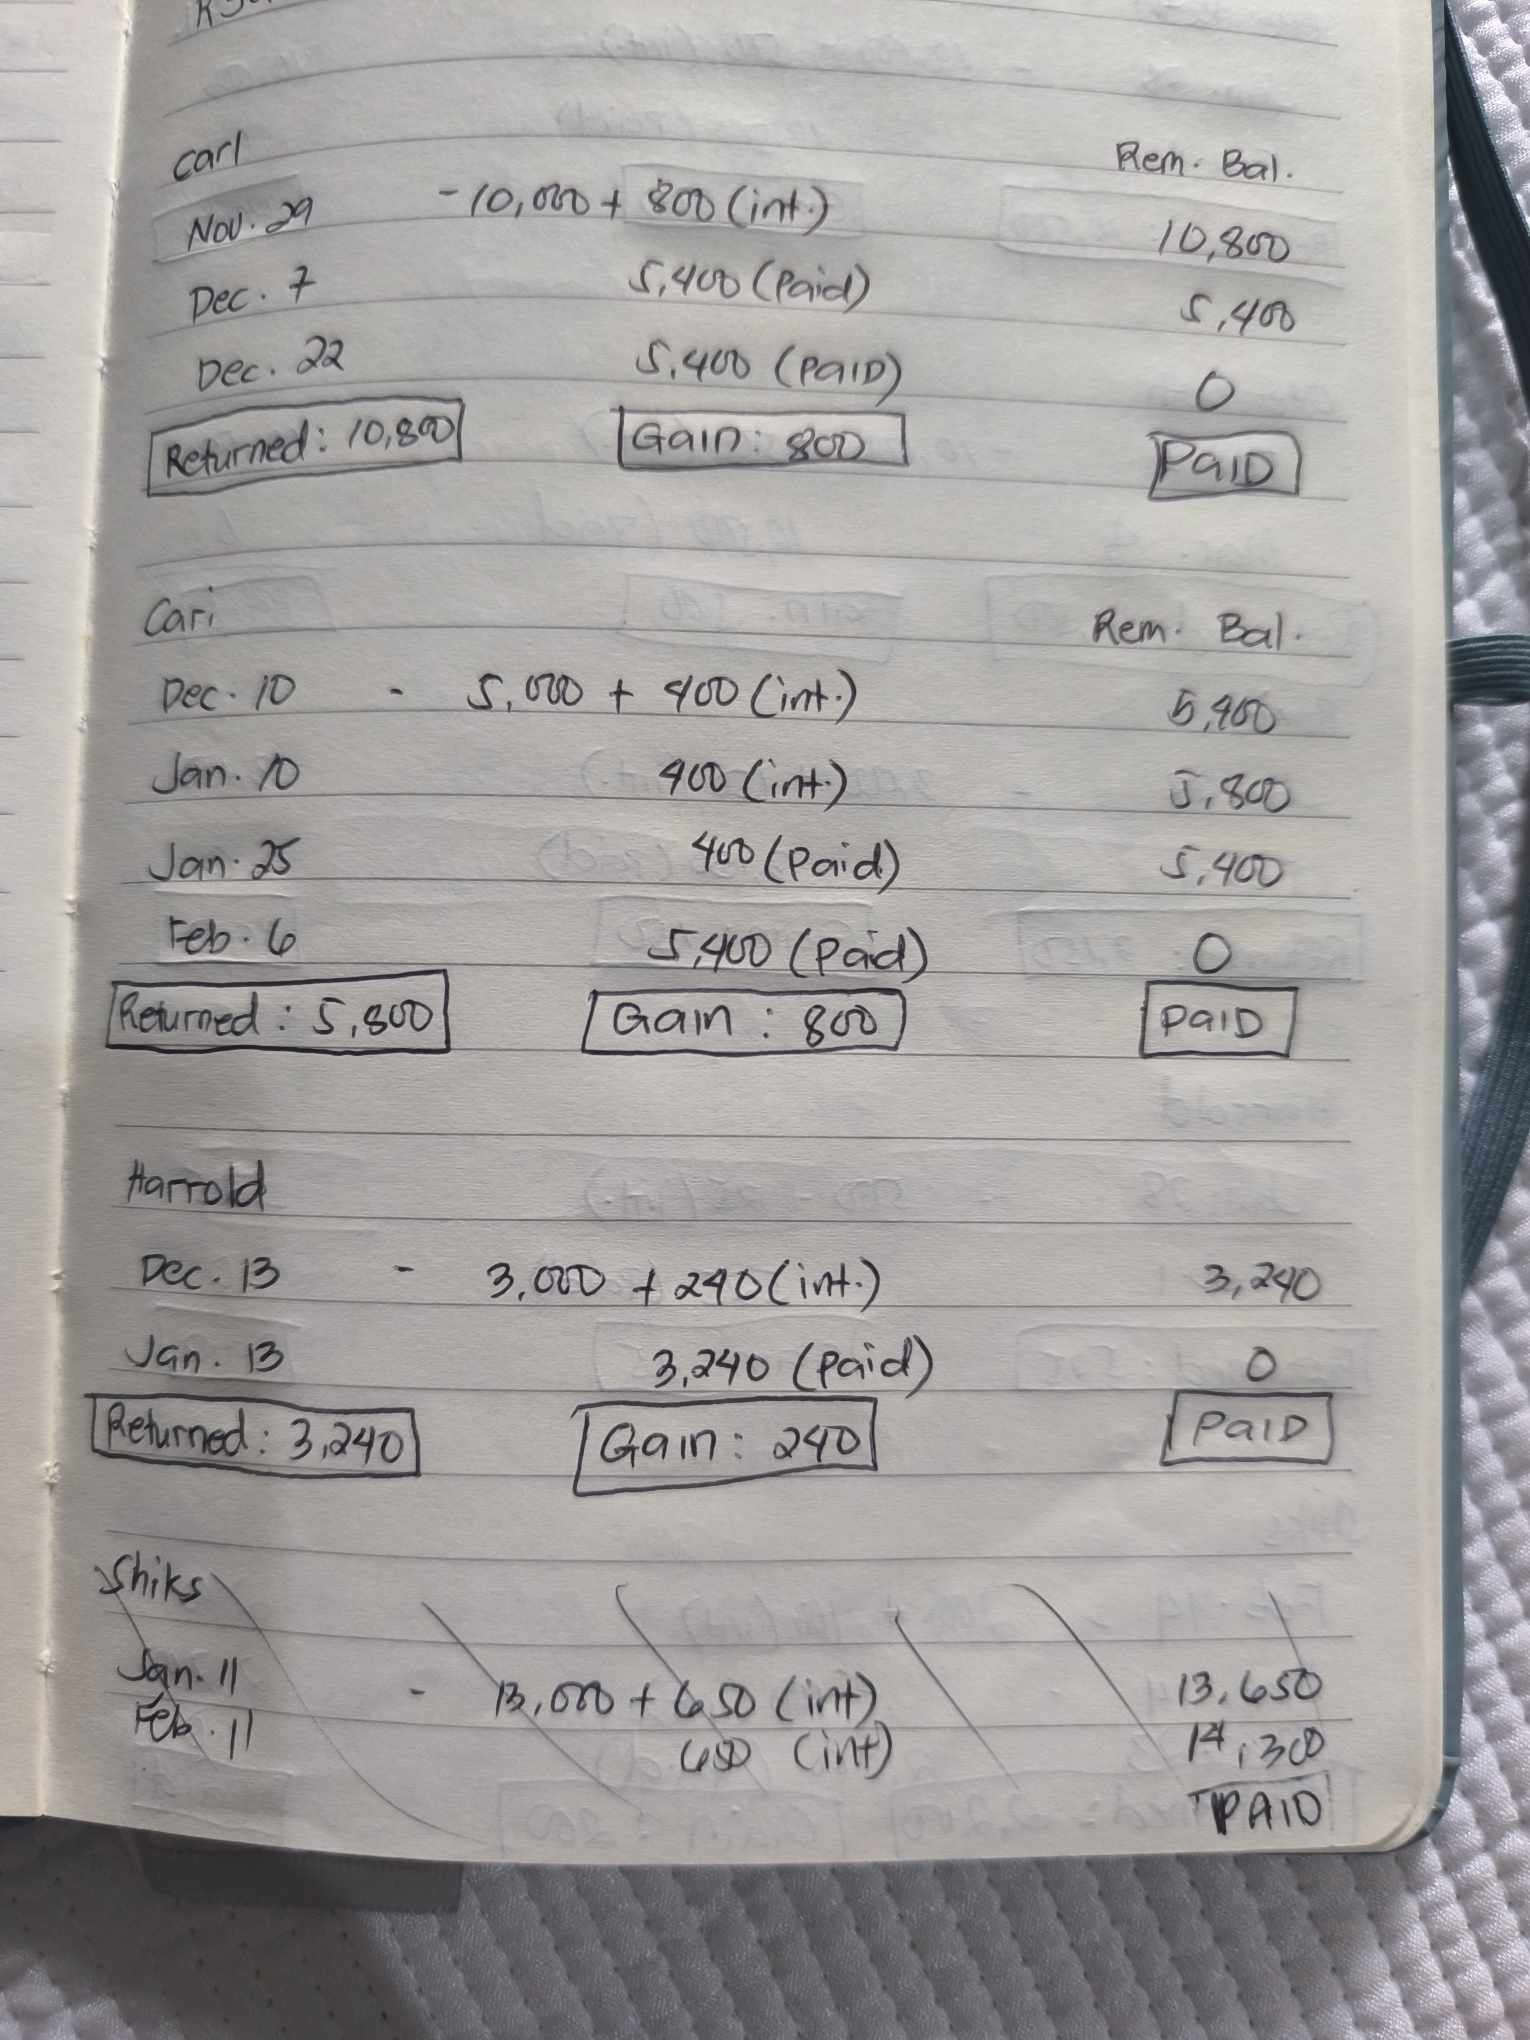 Carl Rem. Bal.
Nov. 29 - 10,000 + 800 (int.) 10,800
Dec. 7 5,400 (Paid) 5,400
Dec. 22 5,400 (PAID) 0
Returned: 10,800 Gain: 800 PAID
Cari Rem. Bal.
Dec. 10 - 5,000 + 400 (int.) 5,400
Jan. 10 400 (int.) 5,800
Jan. 25 400 (Paid) 5,400
Feb. 6 5,400 (Paid) 0
Returned: 5,800 Gain: 800 PAID
Harrold
Dec. 13 - 3,000 + 240 (int.) 3,240
Jan. 13 3,240 (Paid) 0
Returned: 3,240 Gain: 240 PAID
Shiks
Jan. 11 - 13,000 + 650 (int) 13,650
Feb. 11 650 (int) 14,300
PAID